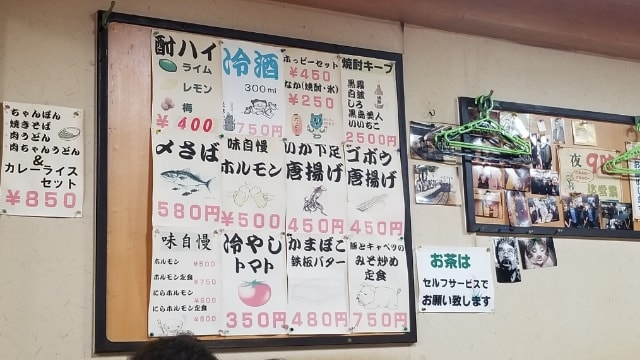 ちゃんぽん
焼きそば
肉うどん
肉ちゃんうどん
&
カレーライス
セット
¥850
酎ハイ
ライム
レモン
梅
¥400
冷酒
300ml
750円
ホッピーセット
¥450
なか(焼酎・氷)
¥250
焼酎キープ
黒霧
白波
しろ
黒島美人
いいちこ
2500円
〆さば
580円
味自慢
ホルモン
¥500
いか下足
唐揚げ
450円
ゴボウ
唐揚げ
450円
味自慢
ホルモン ¥500
ホルモン定食 ¥750
にらホルモン ¥600
にらホルモン定食 ¥800
冷やし
トマト
350円
かまぼこ
鉄板バター
480円
豚とキャベツの
みそ炒め
定食
750円
夜9時
お茶は
セルフサービスで
お願い致します